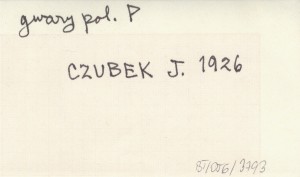 gwary pol. P
CZUBEK J. 1926
BJ/OJG/3793